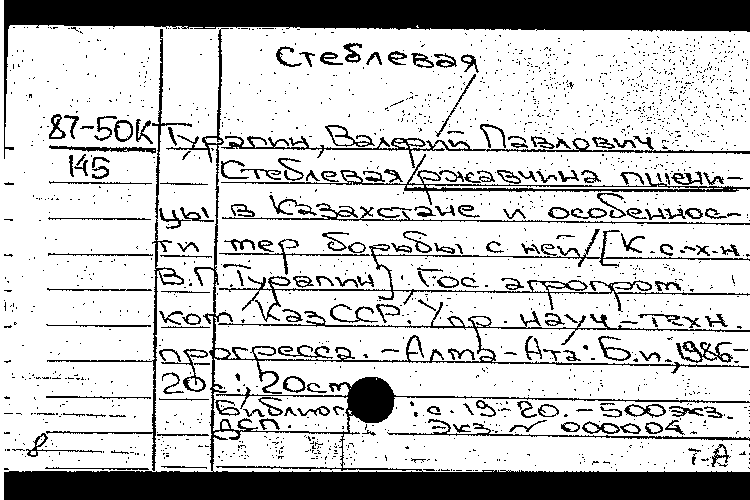 Стеблевая
87-50К Турапин, Валерий Павлович.
145 Стеблевая ржавчина пшени-
цы в Казахстане и особеннос-
ти мер борьбы с ней/[К.с.-х.н.
В.П.Турапин]; Гос. агропром.
ком. КазССР. Упр. науч.-техн.
прогресса. -Алма-Ата: Б.и.,1986-
20с.; 20см
Библиогр : с. 19-20. - 500экз.
ДСП. Экз. № 000004.
8 Т-А